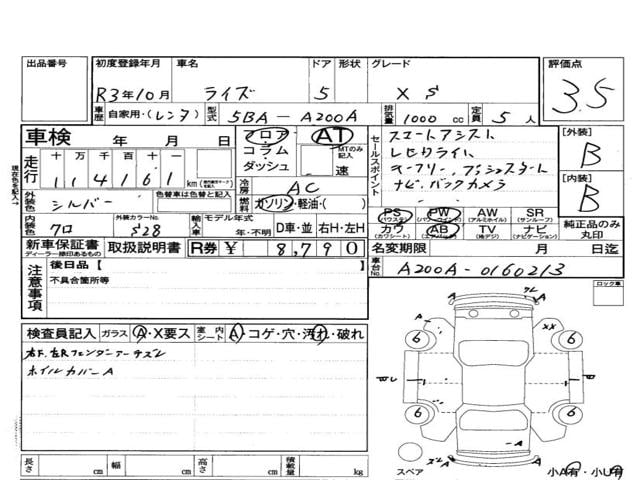 出品番号 初度登録年月 車名 ドア 形状 グレード 評価点
R3年10月 ライズ 5 X S 3.5
車歴 自家用・(レンタ) 型式 5BA-A200A 排気量 1000 cc 定員 5 人
車検 年 月 日 フロア AT
コラム MTのみ記入
ダッシュ 速
セールスポイント
スマートアシスト
LEDライト
キーフリー、プッシュスタート
ナビ、バックカメラ
[外装] B
[内装] B
現在色を記入
走行 十 万 千 百 十 一
1 1 4 1 6 1 km
冷房 AC
外装色 シルバー 色替車は色替と記入 燃料 ガソリン・軽油・( )
内装色 クロ 外装カラーNo. S28 輸入車 モデル年式 年・不明 D車・並 右H・左H
PS (パワステ) PW AW (アルミホイル) SR (サンルーフ)
カワ (カワシート) AB TV (地デジ) ナビ (ナビゲーション)
純正品のみ丸印
新車保証書 ディーラー捺印あるもの 取扱説明書 R券 ¥ 8,790
名変期限 月 日迄
注意事項 後日品【
不具合箇所等
車台No. A200A-0160213
ロック車
検査員記入 ガラス A・X要ス 室内シート A・コゲ・穴・汚れ・破れ
右F.左Rフェンダーアーチズレ
ホイルカバーA
A クレ A
XX
6 6
6 6
-A
ズレ A
スペア 小A有・小U有
長さ cm 幅 cm 高さ cm 積載量 kg